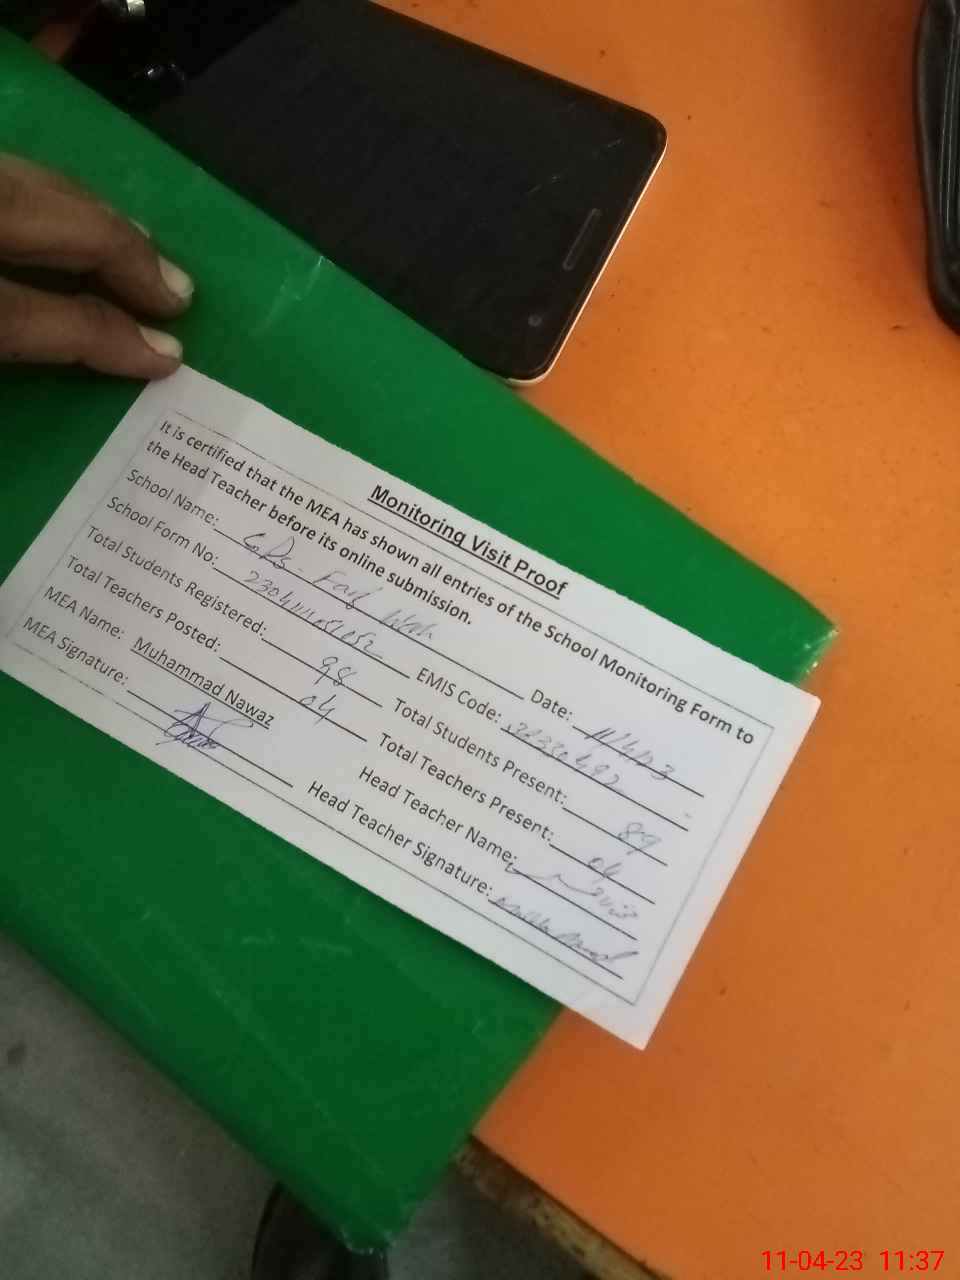 Monitoring Visit Proof
It is certified that the MEA has shown all entries of the School Monitoring Form to
the Head Teacher before its online submission.
School Name: GPS Date: 11/4/23
School Form No: EMIS Code:
Total Students Registered: 98 Total Students Present: 89
Total Teachers Posted: 04 Total Teachers Present: 04
MEA Name: Muhammad Nawaz Head Teacher Name:
MEA Signature: Head Teacher Signature:
11-04-23 11:37